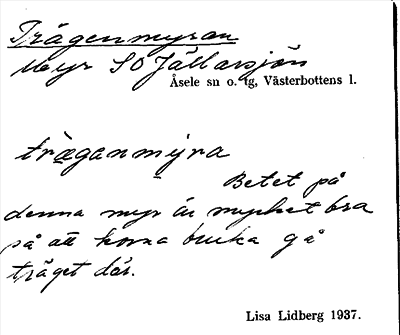 Trägenmyran
Myr SO Jällarsjön
Åsele sn o. tg, Västerbottens l.
träganmýra
Betet på
denna myr är mycket bra
så att korna bruka gå
träget där.
Lisa Lidberg 1937.